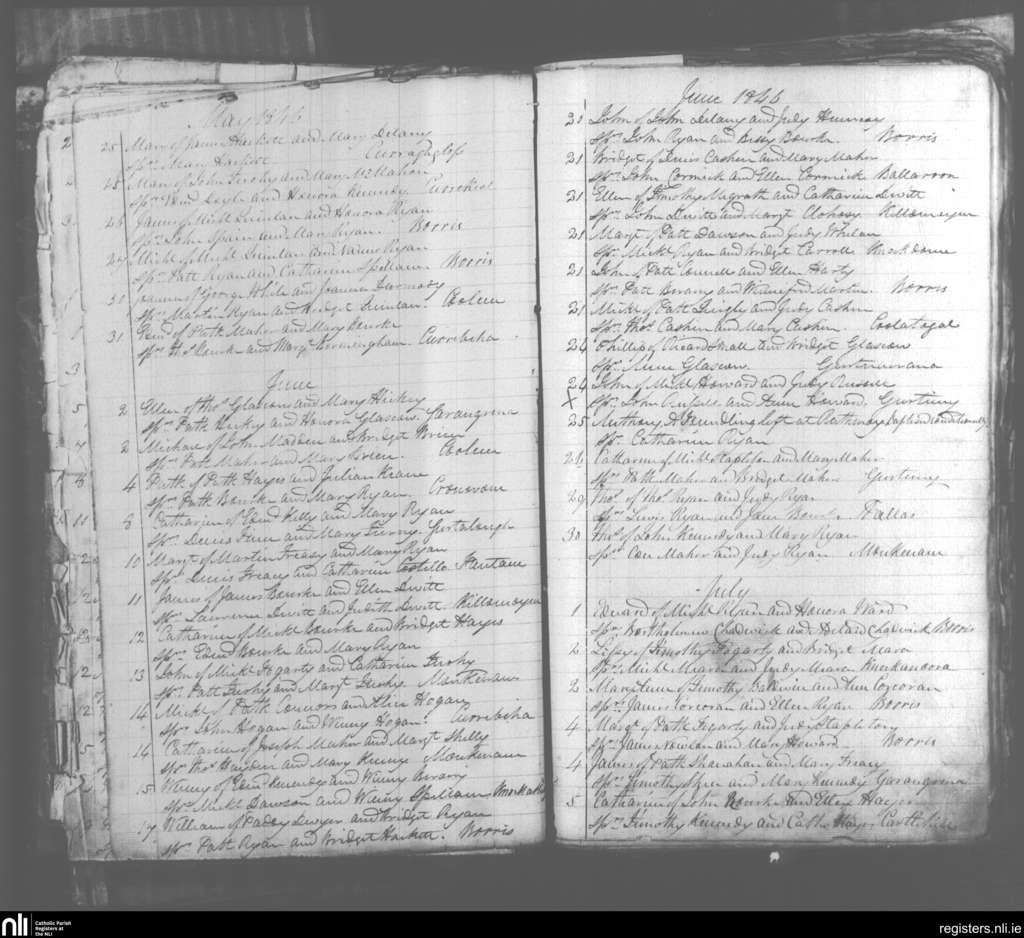 May 1846
25 Mary of James Hackett and Mary Delany
Spr. Mary Hackett
25 Mary of John Ferohy and Mary McMahon
Sprs. Edmd Doyle and Honora Kennedy
26 James of Michl Quinlan and Honora Ryan
Sprs. John Spain and Mary Ryan. Borris
27 Michl of Michl Quinlan and Ryan
Sprs. Patt Ryan and Catharine Spillane Borris
30 Joanna of George White and Joanna Dermody
Sprs. Martin Ryan and Bridget Quinlan. Cooleen
31 Edmd of Patt Maher and Mary Bourke
Sprs. Thos Bourke and Margt Bermingham Curribeha
June
2 Ellen of Thos Glasson and Mary Hickey
Sprs. Patt Hickey and Honora Glasson. Garangrena
2 Michael of John Madden and Bridget Brien
Sprs. Patt Maher and Mary Green. Cooleen
4 Patt of Patt Hayes and Julian Keane
Sprs. Patt Bourke and Mary Ryan.
8 Catharine of Edmd Kelly and Mary Ryan
Sprs. Denis Finn and Mary
10 Margt of Martin Treasy and Mary Ryan
Sprs. Denis Treacy and Catharine Costillo
11 James of James Bourke and Ellen Dwitt
Sprs. Lawrence Dwitt and Judith Dwitt. Killamoyne
12 Catharine of Michl Bourke and Bridget Hayes
Sprs. Edmd Bourke and Mary Ryan
13 John of Michl Fogarty and Catharine Guihy
Sprs. Patt Guihy and Margt Guihy.
14 Michl of Patt Connors and Alice Hogan
Sprs. John Hogan and Winny Hogan. Curribeha
14 Catharine of Joseph Maher and Margt Shelly
Sprs. Thos Hayden and Mary Kenny Monkenam
15 Winny of Edmd Kennedy and Winny
Sprs. Michl Dawson and Winny Spillane
17 William of Paddy Dwyer and Bridget Ryan
Sprs. Patt Ryan and Bridget Hackett. Borris
June 1846
20 John of John Delany and Judy Hennesy
Sprs. John Ryan and Bessy Bourke. Borris
21 Bridget of Denis Cashen and Mary Maher
Sprs. John Cormick and Ellen Cormick Ballaroon
21 Ellen of Timothy Megrath and Catharine Dwitt
Sprs. John Dwitt and Margt Killamoyne
21 Margt of Patt Dawson and Judy Whelan
Sprs. Michl Ryan and Bridget Carroll
21 John of Patt Connell and Ellen Harty
Sprs. Patt and Winnefred Martin. Borris
21 Michl of Patt Quigly and Judy Cashen
Sprs. Thos Cashen and Mary Cashen. Coolatagal
24 Phillip of Ricard Small and Bridget Glasson
Spr. Anne Glasson.
24 John of Michl Howard and Judy Russell
X Sprs. John Russell and Anne Howard. Gurteeny
25 Anthony A Foundling left at Rathmoy baptised conditionally
Spr. Catharine Ryan
26 Catharine of Michl Stapleton and Mary Maher
Sprs. Patt Maher and Bridget Maher Gurteeny
29 Thos of Thos Ryan and Judy Ryan
Sprs. Lewis Ryan and Jane Bourke. Fallas
30 Thos of John Kennedy and Mary Ryan
Sprs. Con Maher and Judy Ryan Monkenam
July
1 Edward of Michl Ryan and Honora Ward
Sprs. Bartholemew Chadwick and Chadwick Borris
2 of Timothy Fogarty and Bridget Mara
Sprs. Michl Meara and Judy Meara Knockandora
2 Mary Anne of Timothy Baldwin and Ann Corcoran
Sprs. James Corcoran and Ellen Ryan Borris
4 Margt of Patt Fogarty and Judy Stapleton
Sprs. James Nowlan and Mary Howard. Borris
4 James of Patt Shanahan and Mary Treacy
Sprs. Timothy and Mary Kennedy Garangrena
5 Catharine of John Bourke and Ellen Hayes
Sprs. Timothy Kennedy and Cathe Hayes
nli
Catholic Parish
Registers at
the NLI
registers.nli.ie